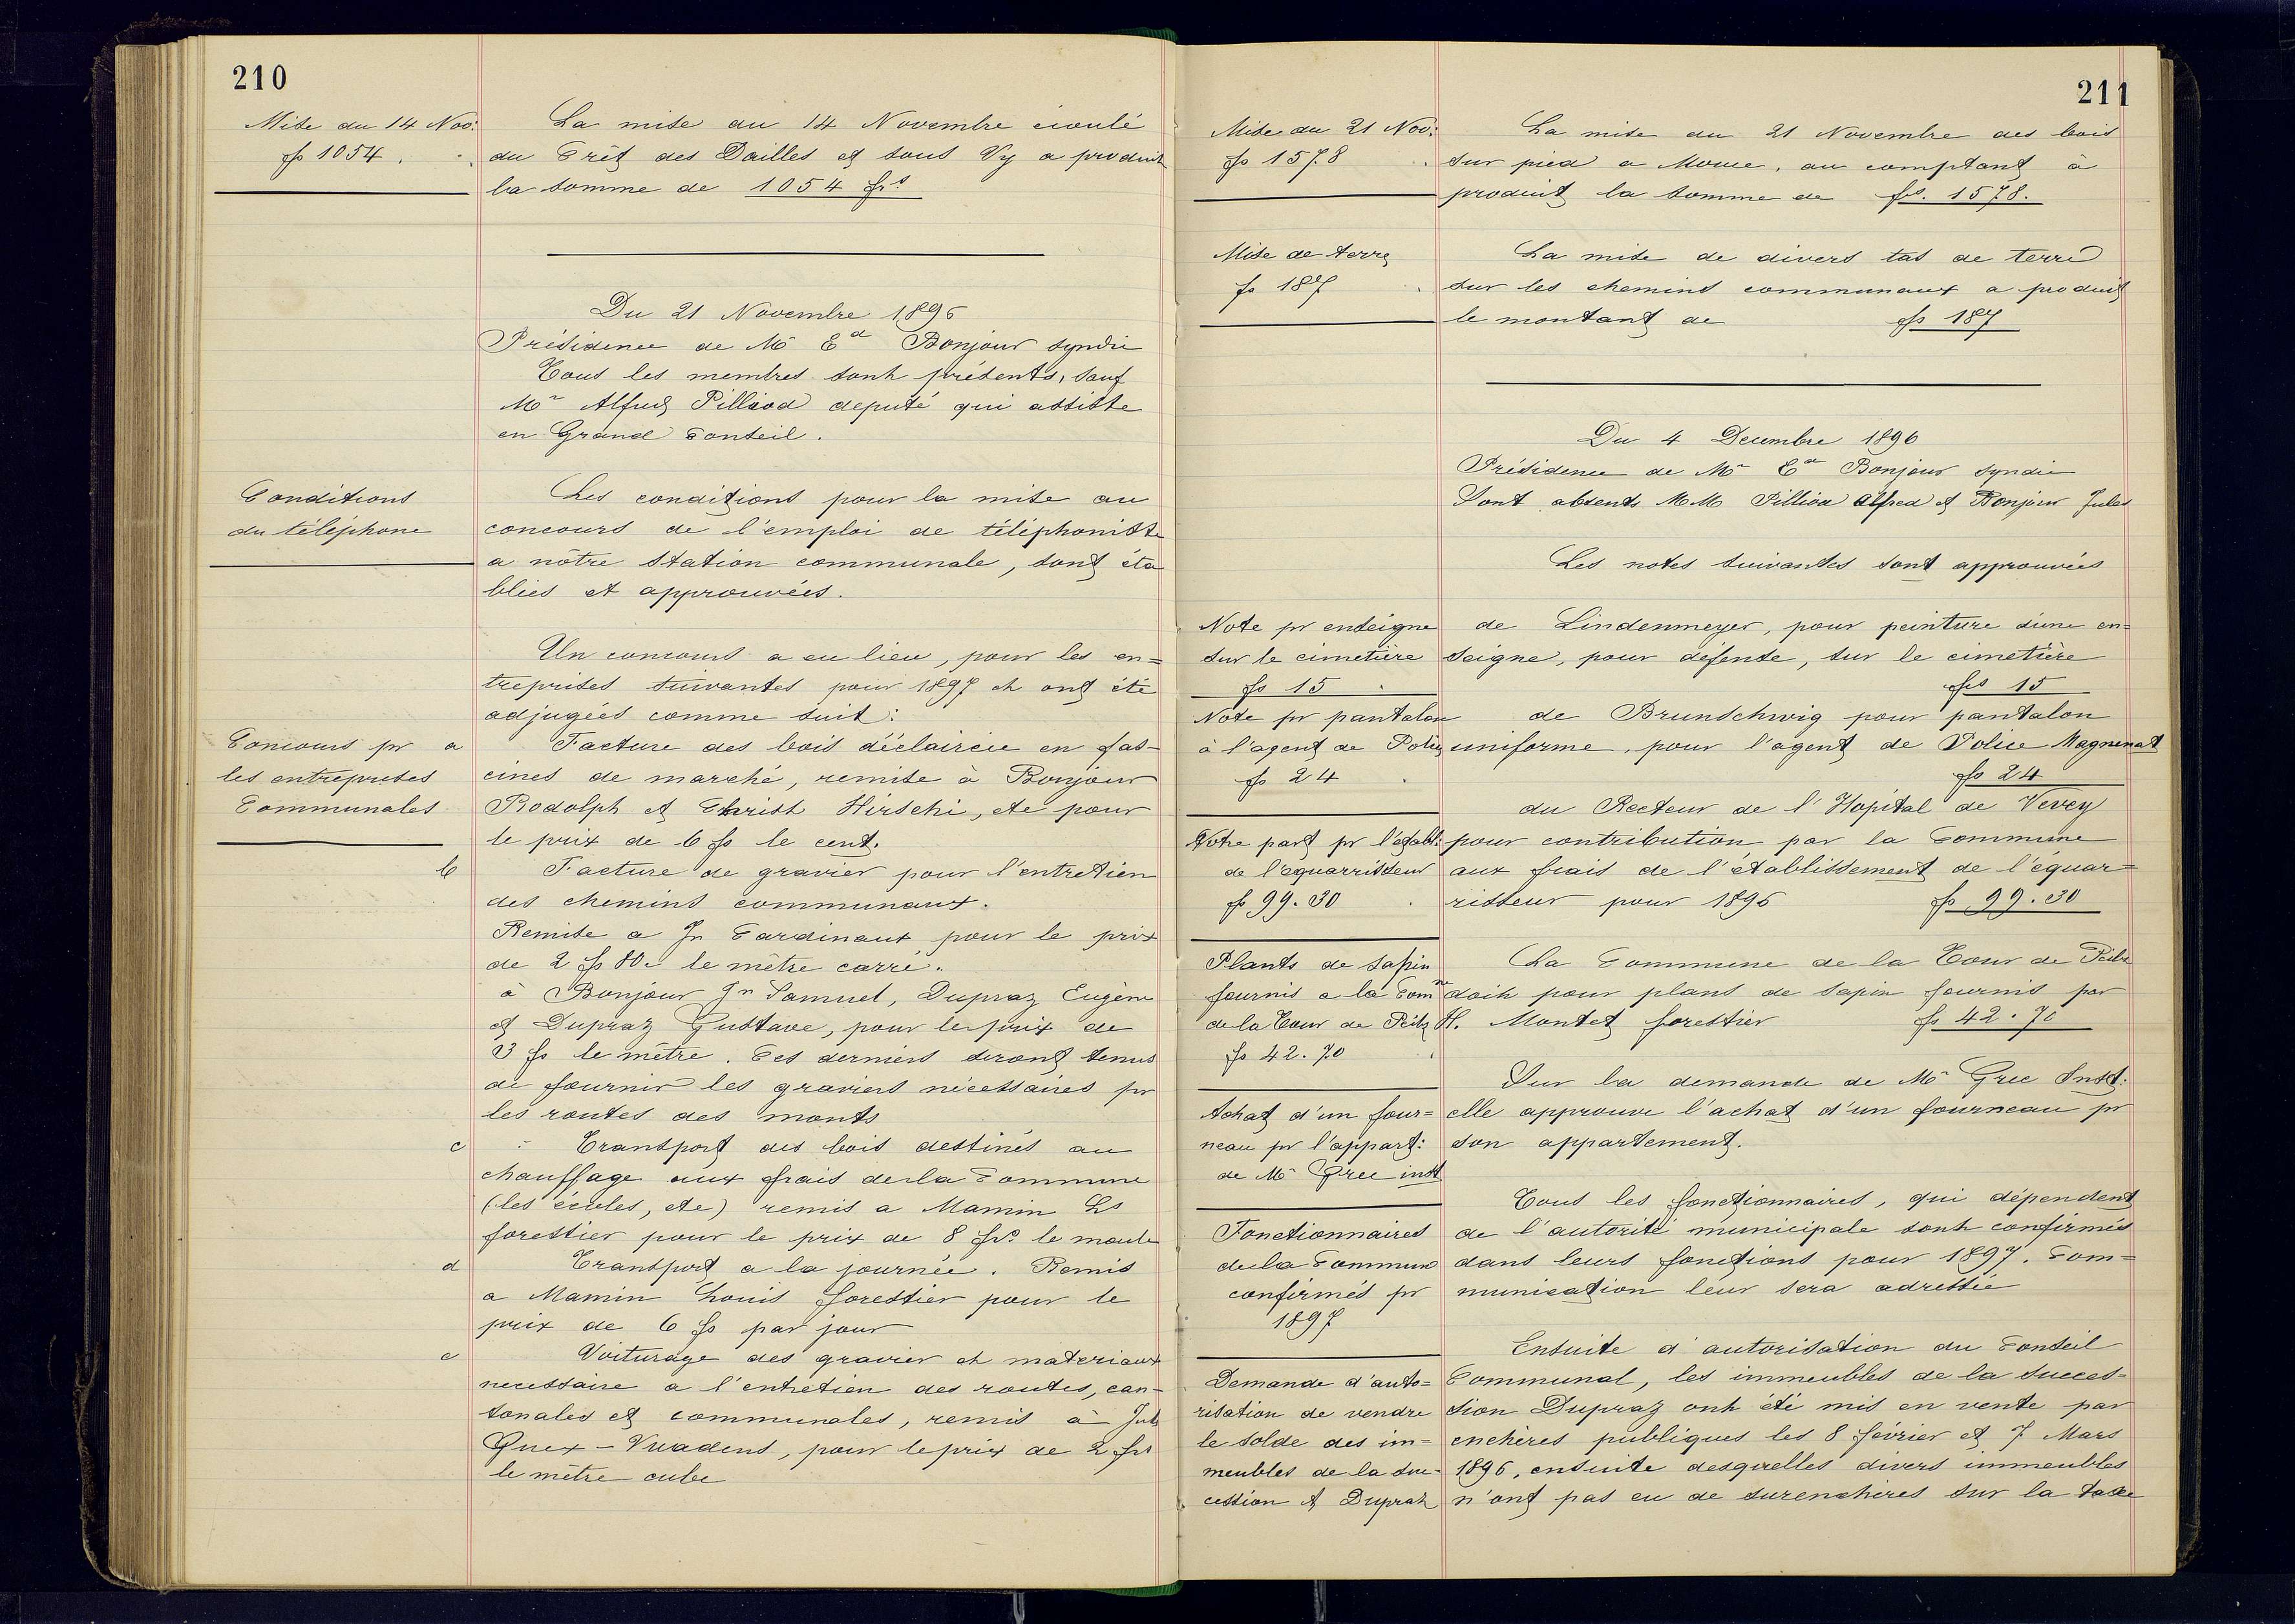 210
Mise du 14 Nov:
fs 1054.
La mise du 14 Novembre écoulé
du Crêt des Dailles et sous Vy a produit
la somme de 1054 frs
Du 21 Novembre 1896
Présidence de Mr Ed Bonjour syndic
Tous les membres sont présents, sauf
Mr Alfred Pilliod député qui assiste
en Grand Conseil.
Conditions
du téléphone
Les conditions pour la mise au
concours de l'emploi de téléphoniste
a nôtre station communale, sont éta
blies et approuvées.
Un concours a eu lieu, pour les en=
treprises suivantes pour 1897 et ont été
adjugées comme suit:
Concours pr a
les entreprises
Communales
Facture des bois d'éclaircie en fas-
cines de marché, remise à Bonjour
Rodolph et Christ Hirschi, etc pour
le prix de 6 fs le cent.
b
Facture de gravier pour l'entretien
des chemins communaux.
Remise a Jn Cardinaux pour le prix
de 2 fs 80c le mètre carré.
à Bonjour Jn Samuel, Dupraz Eugène
et Dupraz Gustave, pour le prix de
3 fs le mètre. Ces derniers seront tenus
de fournir les graviers nécessaires pr
les routes des monts
c
Transport des bois destinés au
chauffage aux frais de la Commune
(les écoles, etc) remis a Mamin Ls
forestier pour le prix de 8 frs le moule
d
Transport a la journée. Remis
a Mamin Louis forestier pour le
prix de 6 fs par jour
e
Voiturage des gravier et materiaux
necessaire a l'entretien des routes, can-
tonales et communales, remis à Juls
Guex-Vuadens, pour le prix de 2 frs
le mètre cube
211
Mise du 21 Nov:
fs 1578
La mise du 21 Novembre des bois
sur pied a Moue, au comptant à
produit la somme de fs. 1578.
Mise de terre
fs 187
La mise de divers tas de terre
sur les chemins communaux a produit
le montant de fs 187
Du 4 Decembre 1896
Présidence de Mr Ed Bonjour syndic
Sont absents MM Pilliod Alfred et Bonjour Jules
Les notes suivantes sont approuvées
Note pr enseigne
sur le cimetière
fs 15
de Lindenmeyer, pour peinture d'une en=
seigne, pour défense, sur le cimetière
frs 15
Note pr pantalon
à l'agent de Police
fs 24
de Brunschwig pour pantalon
uniforme, pour l'agent de Police Magnenat
fs 24
Notre part pr l'établ:
de l'équarrisseur
fs 99.30
du Recteur de l'Hopital de Vevey
pour contribution par la Commune
aux frais de l'établissement de l'équar=
risseur pour 1896 fs 99.30
Plants de sapin
fournis a la Comne
de la Tour de Peilz
fs 42.70
La Commune de la Tour de Peilz
doit pour plans de sapin fournis par
H. Montet forestier fs 42.70
Achat d'un four=
neau pr l'appart:
de Mr Grec inst
Sur la demande de Mr Grec Inst:
elle approuve l'achat d'un fourneau pr
son appartement.
Fonctionnaires
de la Commune
confirmés pr
1897
Tous les fonctionnaires, qui dépendent
de l'autorité municipale sont confirmés
dans leurs fonctions pour 1897. Com=
munication leur sera adressée
Demande d'auto=
risation de vendre
le solde des im=
meubles de la suc-
cession A Dupraz
Ensuite d'autorisation du Conseil
Communal, les immeubles de la succes=
sion Dupraz ont été mis en vente par
enchères publiques les 8 février et 7 Mars
1896, ensuite desquelles divers immeubles
n'ont pas eu de surenchères sur la taxe